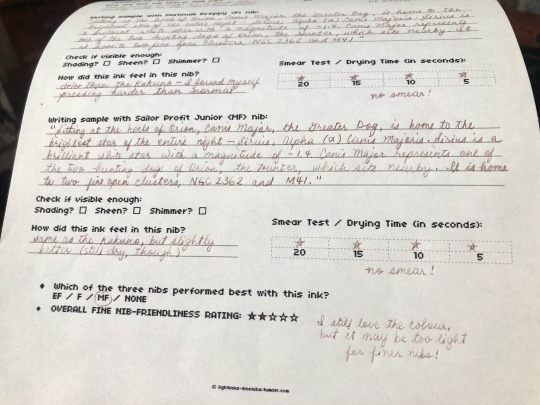 Writing sample with Platinum Preppy (F) nib:
"Sitting at the heels of Orion, Canis Major, the Greater Dog, is home to the
brightest star of the entire night - Sirius, Alpha (α) Canis Majoris. Sirius is
a brilliant white star with a magnitude of -1.4. Canis Major represents
one of the two hunting dogs of Orion, the hunter, which sits nearby. It
is home to two fine open clusters, NGC 2362 and M41."
Check if visible enough:
Shading? ☐ Sheen? ☐ Shimmer? ☐
How did this ink feel in this nib?
drier than the Kakuno - I found myself
pressing harder than normal
Smear Test / Drying Time (in seconds):
20 15 10 5
no smear!
Writing sample with Sailor Profit Junior (MF) nib:
"Sitting at the heels of Orion, Canis Major, the Greater Dog, is home to the
brightest star of the entire night - Sirius, Alpha (α) Canis Majoris. Sirius is a
brilliant white star with a magnitude of -1.4. Canis Major represents one of
the two hunting dogs of Orion, the hunter, which sits nearby. It is home
to two fine open clusters, NGC 2362 and M41."
Check if visible enough:
Shading? ☐ Sheen? ☐ Shimmer? ☐
How did this ink feel in this nib?
same as the Kakuno, but slightly
better (still dry, though)
Smear Test / Drying Time (in seconds):
20 15 10 5
no smear!
♦ Which of the three nibs performed best with this ink?
EF / F / MF / NONE
♦ OVERALL FINE NIB-FRIENDLINESS RATING: ★★☆☆☆
I still love the colour,
but it may be too light
for finer nibs!